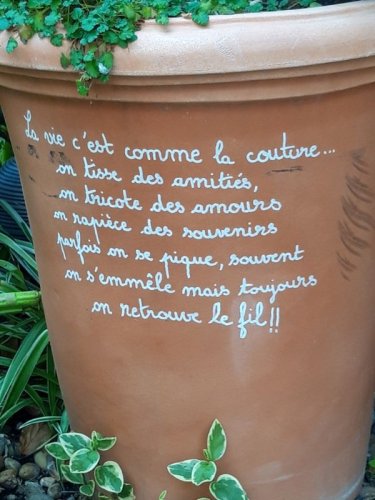 La vie c'est comme la couture...
on tisse des amitiés,
on tricote des amours
on rapièce des souvenirs
parfois on se pique, souvent
on s'emmêle mais toujours
on retrouve le fil!!